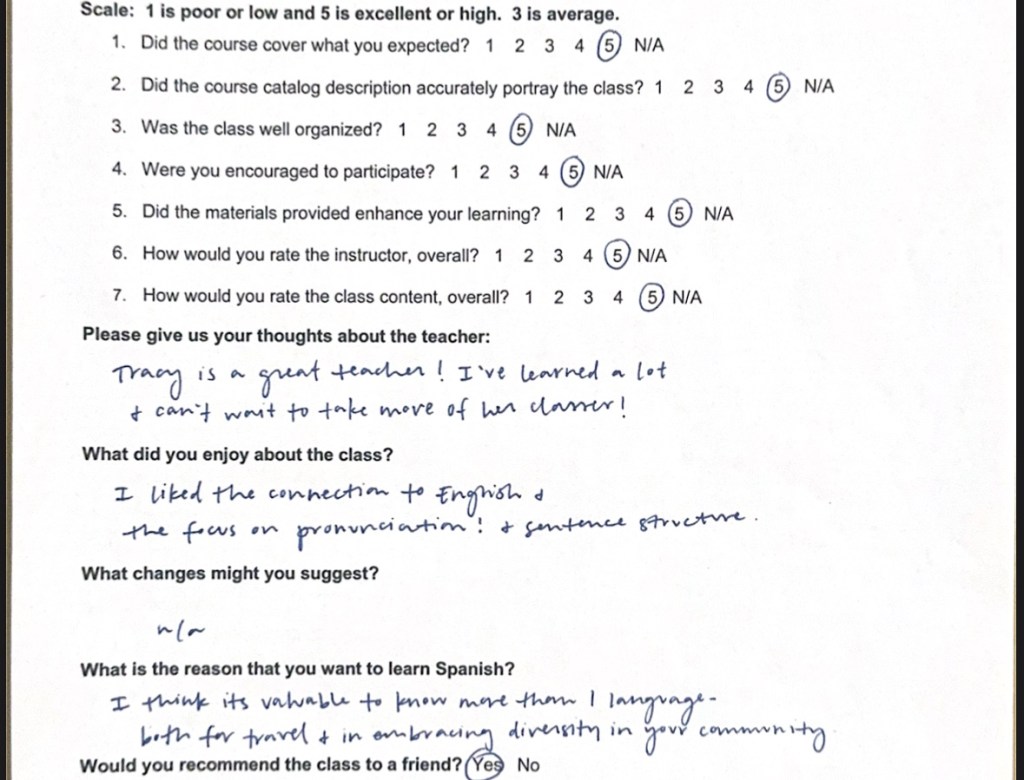 Scale: 1 is poor or low and 5 is excellent or high. 3 is average.
1. Did the course cover what you expected? 1 2 3 4 5 N/A
2. Did the course catalog description accurately portray the class? 1 2 3 4 5 N/A
3. Was the class well organized? 1 2 3 4 5 N/A
4. Were you encouraged to participate? 1 2 3 4 5 N/A
5. Did the materials provided enhance your learning? 1 2 3 4 5 N/A
6. How would you rate the instructor, overall? 1 2 3 4 5 N/A
7. How would you rate the class content, overall? 1 2 3 4 5 N/A
Please give us your thoughts about the teacher:
Tracy is a great teacher! I've learned a lot
& can't wait to take more of her classes!
What did you enjoy about the class?
I liked the connection to English &
the focus on pronunciation! & sentence structure.
What changes might you suggest?
n/a
What is the reason that you want to learn Spanish?
I think its valuable to know more than 1 language-
both for travel & in embracing diversity in your community
Would you recommend the class to a friend? Yes No